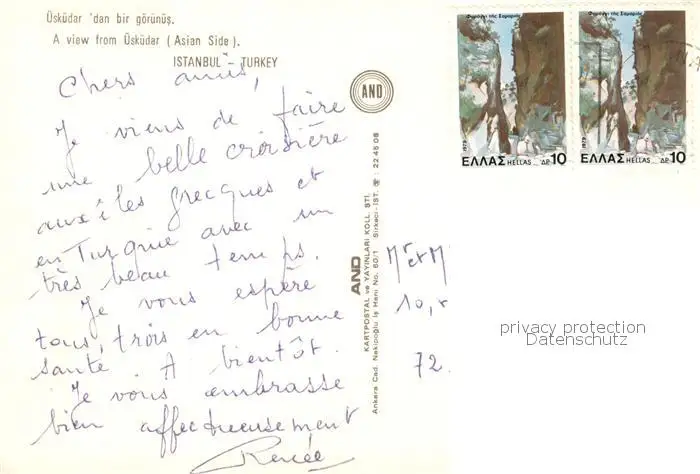 Üsküdar 'dan bir görünüş.
A view from Üsküdar (Asian Side).
ISTANBUL - TURKEY
Chers amis,
Je viens de faire
une belle croisière
aux îles grecques et
en Turquie avec un
très beau temps.
Je vous espère
tous trois en bonne
santé. A bientôt.
Je vous embrasse
bien affectueusement
Renée
AND
AND
KARTPOSTAL ve YAYINLARI KOLL. ŞTİ.
Ankara Cad. Nakipoğlu İş Hanı No. 60/1 Sirkeci-İST. ☎ : 22 45 08
Φαράγγι τῆς Σαμαριᾶς
1979
ΕΛΛΑΣ HELLAS ΔΡ 10
Φαράγγι τῆς Σαμαριᾶς
1979
ΕΛΛΑΣ HELLAS ΔΡ 10
Mr et M
10, r
72.
privacy protection
Datenschutz